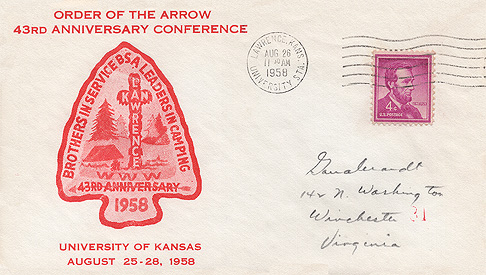 ORDER OF THE ARROW
43RD ANNIVERSARY CONFERENCE
BROTHERS IN SERVICE BSA LEADERS IN CAMPING
KAN
LAWRENCE
WWW
43RD ANNIVERSARY
1958
UNIVERSITY OF KANSAS
AUGUST 25-28, 1958
LAWRENCE, KANS.
AUG 26
11 AM
1958
UNIVERSITY STA.
4¢
U.S. POSTAGE
142 N. Washington
Winchester
Virginia